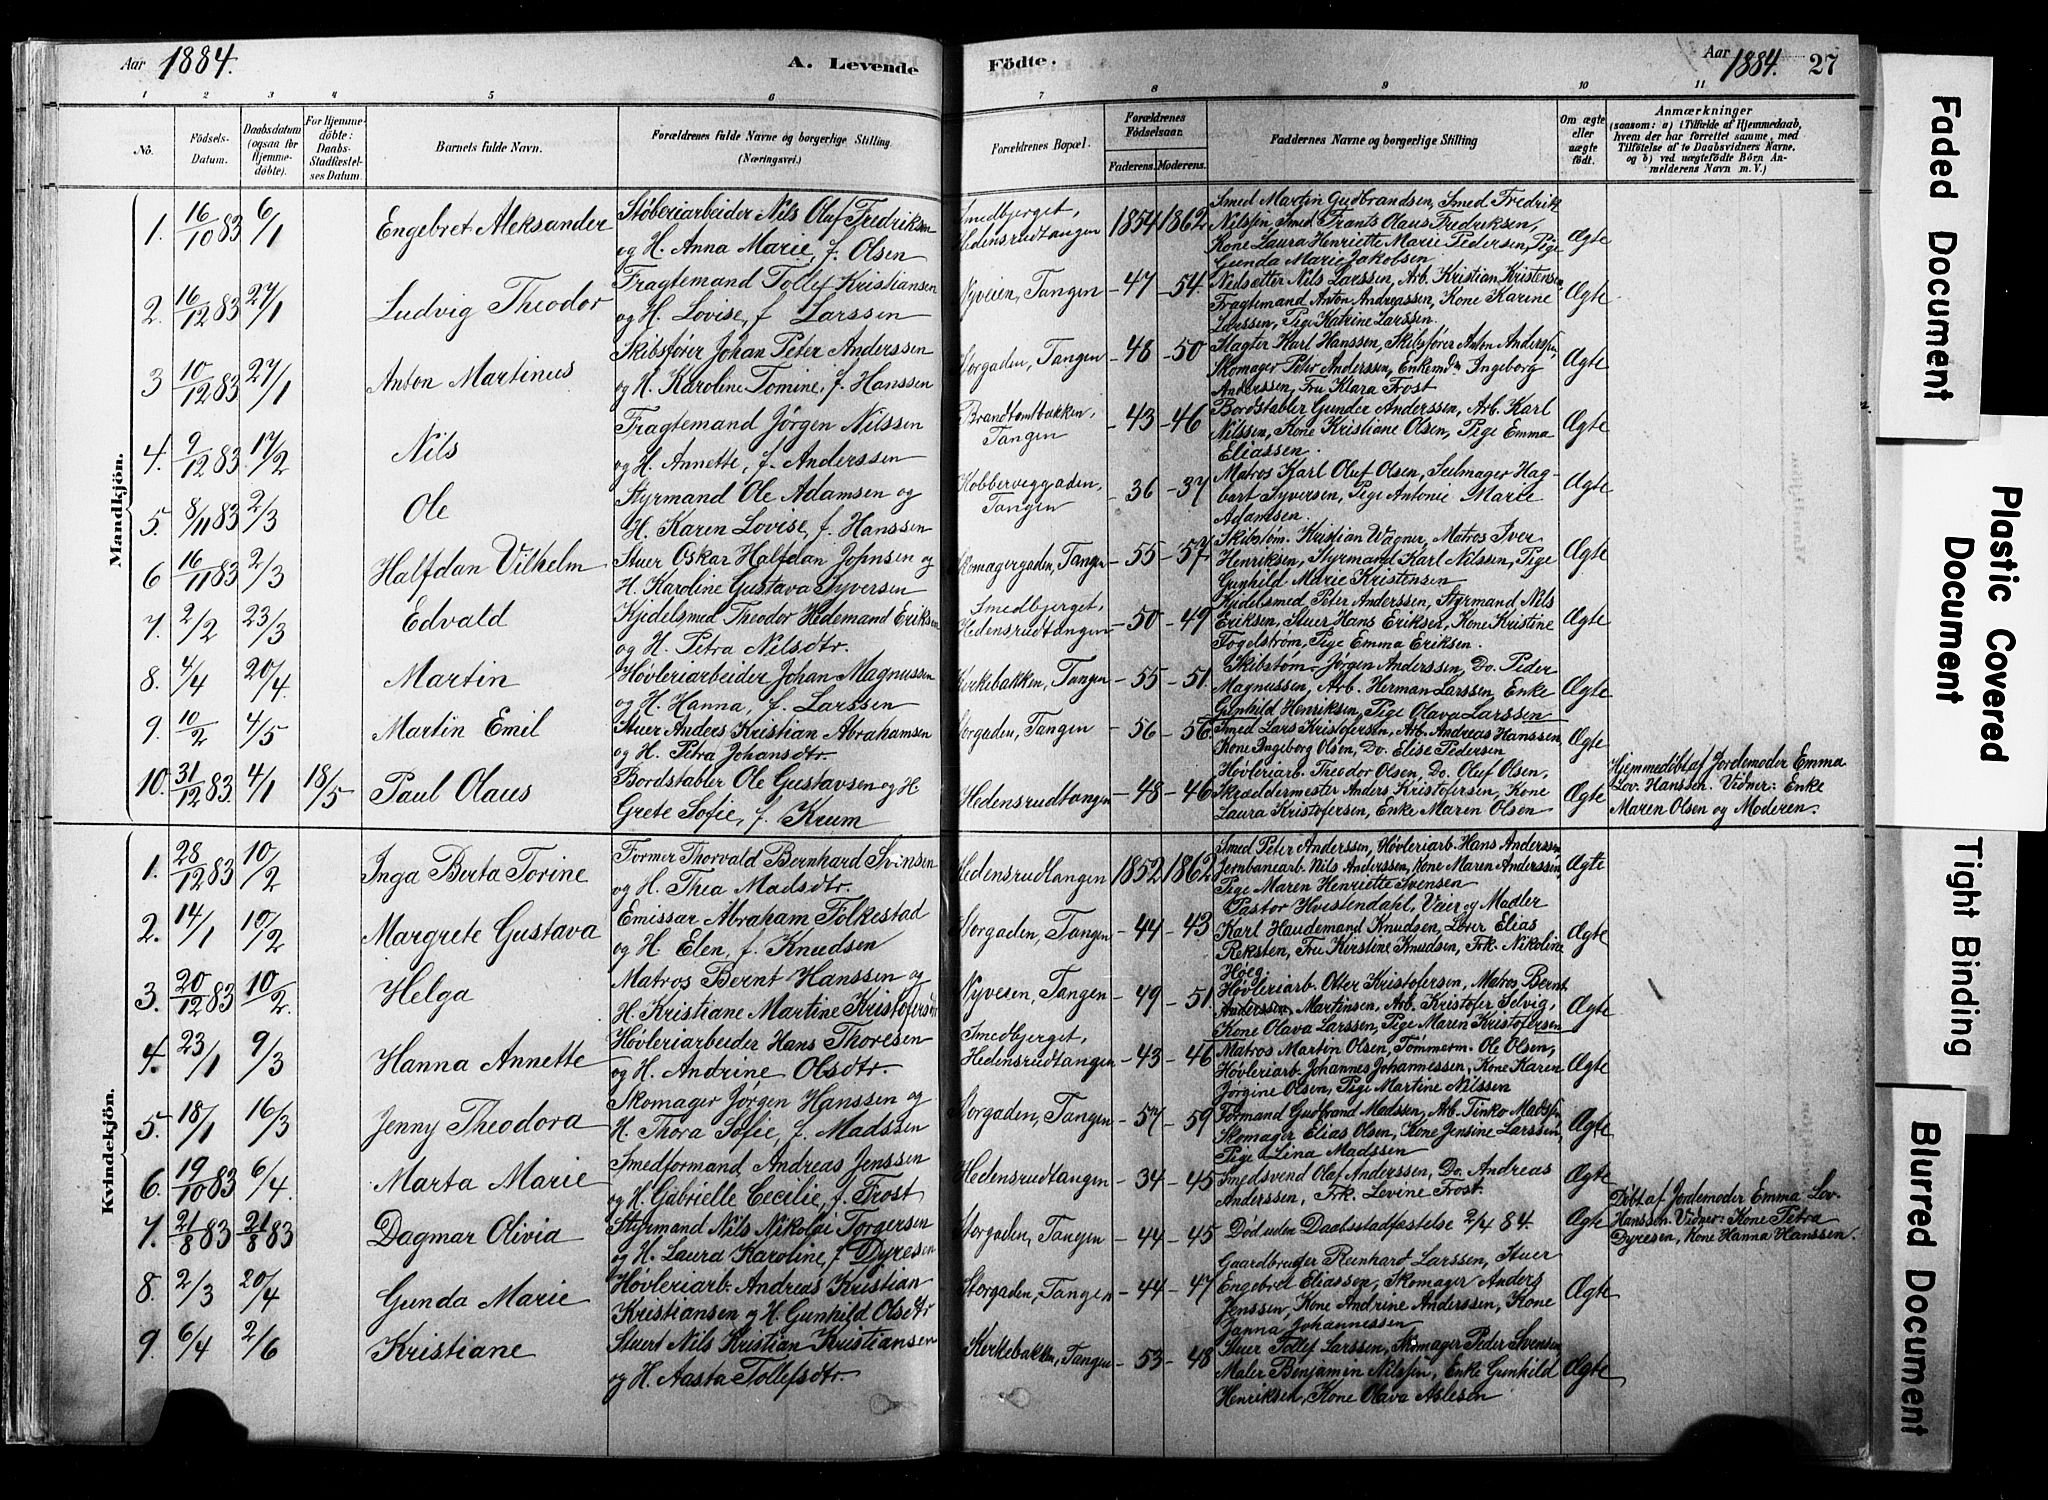 Aar 1884.
A. Levende
Födte.
Aar 1884. 27
1 2 3 4 5 6 7 8 9 10 11
No.
Födsels-Datum.
Daabsdatum (ogsaa för Hjemmedöbte).
For Hjemmedöbte: Daabs-Stadfæstelses Datum.
Barnets fulde Navn.
Forældrenes fulde Navne og borgerlige Stilling
(Næringsvei.)
Forældrenes Bopæl.
Forældrenes Födselsaar.
Faderens. Moderens.
Faddernes Navne og borgerlige Stilling
Om ægte eller uægte födt.
Anmærkninger
(saasom: a) i Tilfælde af Hjemmedaab,
hvem der har forrettet samme, med
Tilföielse af to Daabsvidners Navne,
og b) ved uægtefödte Börn Anmelderens Navn m. V.)
Mandkjön.
1. 16/10 83 6/1 Engebret Aleksander
Støberiarbeider Nils Oluf Fredriksen
og H. Anna Marie, f. Olsen
Smedbjerget,
Hedensrudtangen 1854 1862
Smed Martin Gudbrandsen, Smed Fredrik
Nilssen, Smed Frants Olaus Fredriksen,
Kone Laura Henriette Marie Pedersen, Pige
Gunda Marie Jakobsen
Ægte
2. 16/12 83 27/1 Ludvig Theodor
Fragtemand Tollef Kristiansen
og H. Lovise, f. Larssen
Nyveien, Tangen - 47 - 54.
Nedsetter Nils Larssen, Arb. Kristian Kristensen
Fragtemand Anton Andreassen, Kone Karine
Larssen, Pige Katrine Larssen.
Ægte
3 10/12 83 27/1 Anton Martinus
Skibsfører Johan Peter Anderssen
og H. Karoline Tomine, f. Hanssen
Storgaden, Tangen - 48 - 50
Slagter Karl Hanssen, Skibsfører Anton Anderssen,
Skomager Peter Anderssen, Enkemdn Ingeborg
Anderssen, Fru Klara Frost
Ægte
4. 9/12 83 17/2 Nils
Fragtemand Jørgen Nilssen
og H. Annette, f. Anderssen
Brandtomtbakken,
Tangen - 43 - 46
Bordstabler Gunder Anderssen, Arb. Karl
Nilssen, Kone Kristiane Olsen, Pige Emma
Eliassen.
Ægte
5. 8/11 83 2/3 Ole
Styrmand Ole Adamsen og
H. Karen Lovise, f. Hanssen
Kobberveggaden,
Tangen - 36 - 37
Matros Karl Oluf Olsen, Seilmager Hag-
bart Syversen, Pige Antonie Marie
Adamsen.
Ægte
6 16/11 83 2/3 Halfdan Vilhelm
Stuer Oskar Halfdan Johnsen og
H. Karoline Gustava Syversen
Skomagergaden, Tangen - 55 - 57
Skibstøm. Kristian Wagner, Matros Iver
Henriksen, Styrmand Karl Nilssen, Pige
Gunhild Marie Kristensen
Ægte
7. 2/2 23/3 Edvald
Kjedelsmed Theodor Hedemand Eriksen
og H. Petra Nilsdtr.
Smedbjerget,
Hedensrudtangen - 50 - 49
Kjedelsmed Peter Anderssen, Styrmand Nils
Eriksen, Stuer Hans Eriksen, Kone Kristine
Fogelstrøm, Pige Emma Eriksen.
Ægte
8. 4/4 20/4. Martin
Høvleriarbeider Johan Magnussen
og H. Hanna, f. Larssen
Kirkebakken, Tangen - 55 - 51.
Skibstøm. Jørgen Anderssen, Do. Peder
Magnussen, Arb. Herman Larssen, Enke
Gunhild Henriksen, Pige Olava Larssen
Ægte
9. 10/2 4/5 Martin Emil
Stuer Anders Kristian Abrahamsen
og H. Petra Johansdtr.
Storgaden, Tangen - 56 - 56
Smed Lars Kristofersen, Arb. Andreas Hanssen,
Kone Ingeborg Olsen, Do. Elise Pedersen
Ægte
10. 31/12 83. 4/1 18/5 Paul Olaus
Bordstabler Ole Gustavsen og H.
Grete Sofie, f. Krum
Hedensrudtangen - 48 - 46
Høvleriarb. Theodor Olsen, Do. Oluf Olsen,
Skræddermester Anders Kristofersen, Kone
Laura Kristofersen, Enke Maren Olsen
Ægte
Hjemmedøbt af Jordemoder Emma
Lov. Hanssen. Vidner: Enke
Maren Olsen og Moderen.
Kvindekjön.
1. 28/12 83 10/2 Inga Berta Torine
Former Thorvald Bernhard Svinsen
og H. Thea Madsdtr.
Hedensrudtangen 1852 1862
Smed Peter Anderssen, Høvleriarb. Hans Anderssen
Jernbanearb. Nils Anderssen, Kone Maren Anderssen,
Pige Maren Henriette Svensen
Ægte
2. 14/1 10/2 Margrete Gustava
Emissar Abraham Folkestad
og H. Elen, f. Knudsen
Storgaden, Tangen - 44 - 43
Pastor Hvistendahl, Veier og Maaler
Karl Haudemand Knudsen, Lærer Elias
Reksten, Fru Kirstine Knudsen, Frk. Nikoline
Høeg.
Ægte
3. 20/12 83 10/2. Helga
Matros Bernt Hanssen og
H. Kristiane Martine Kristofersdtr
Nyveien, Tangen - 49 - 51
Høvleriarb. Otter Kristofersen, Matros Bernt
Anderssen Martinsen, Arb. Kristofer Selvig,
Kone Olava Larssen, Pige Maren Kristofersen
Ægte
4. 23/1 9/3 Hanna Annette
Høvleriarbeider Hans Thoresen
og H. Andrine Olsdtr.
Smedbjerget,
Hedensrudtangen - 43 - 46
Matros Martin Olsen, Tømmerm. Ole Olsen,
Høvleriarb. Johannes Johannessen, Kone Karen
Jørgine Olsen, Pige Martine Nilssen
Ægte
5. 18/1 16/3 Jenny Theodora
Skomager Jørgen Hanssen og
H. Thora Sofie, f. Madssen
Storgaden, Tangen - 57 - 59
Formand Gudbrand Madssen, Arb. Tinko Madssen
Skomager Elias Olsen, Kone Jensine Larssen,
Pige Lina Madssen
Ægte
6. 19/10 83 6/4. Marta Marie
Smedformand Andreas Jenssen
og H. Gabrielle Cecilie, f. Frost
Hedensrudtangen - 34 - 45
Smedsvend Olaf Anderssen, Do. Andreas
Anderssen, Frk. Levine Frost.
Ægte
7. 21/8 83 21/8 83 Dagmar Olivia
Styrmand Nils Nikolai Torgersen
og H. Laura Karoline, f. Dyresen
Storgaden, Tangen - 44 - 45
Død uden Daabsstadfæstelse 2/4 84.
Ægte
Døbt af Jordemoder Emma Lov.
Hanssen. Vidner: Kone Petra
Dyresen, Kone Hanna Hanssen.
8. 2/3 20/4 Gunda Marie
Høvleriarb. Andreas Kristian
Kristiansen og H. Gunhild Olsdtr
Storgaden, Tangen - 44 - 47
Gaardbruger Reinhard Larssen, Stuer
Engebret Eliassen, Skomager Anders
Jenssen, Kone Andrine Anderssen, Kone
Janna Johannessen
Ægte
9. 6/4 2/6 Kristiane
Stuert Nils Kristian Kristiansen
og H. Aasta Tollefsdtr.
Kirkebakken, Tangen - 53 - 48
Stuer Tollef Larssen, Skomager Peder Svensen
Maler Benjamin Nilssen, Enke Gunhild
Henriksen, Kone Olava Aslesen
Ægte
Faded Document
Plastic Covered
Document
Tight Binding
Blurred Document